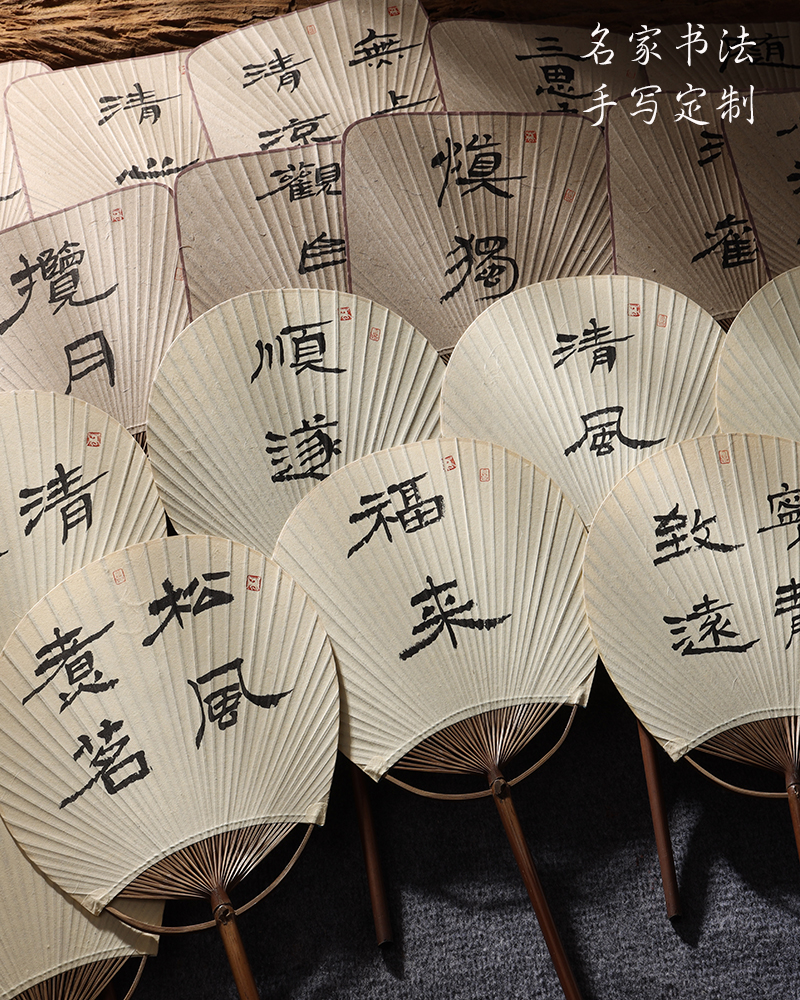 名家书法
手写定制
清心
無上
清涼
三思
隨
觀自
慎獨
攬月
順遂
清風
清
福来
寧靜
致遠
松風
煮茗